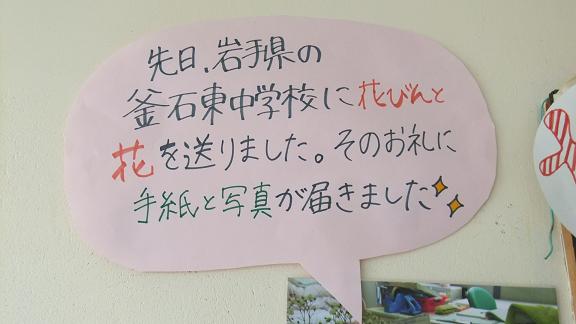 先日、岩手県の
釜石東中学校に花びんと
花を送りました。そのお礼に
手紙と写真が届きました